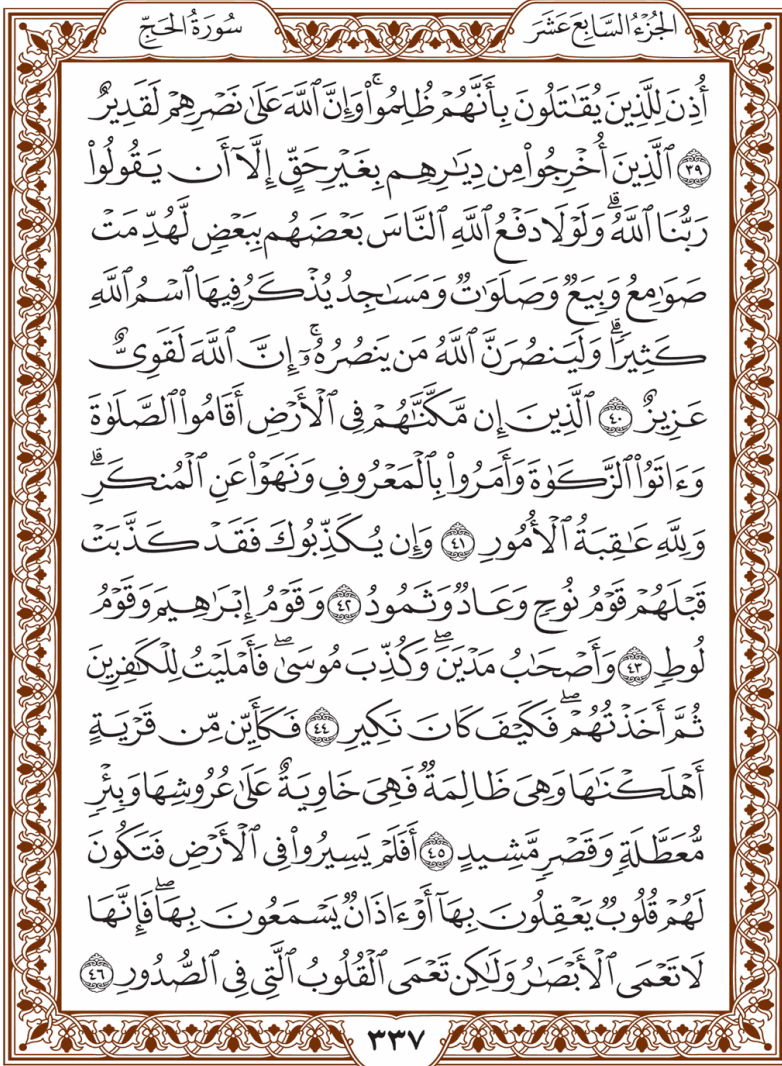 الجُزْءُ السَّابِعَ عَشَرَ
سُورَةُ الحَجِّ
أُذِنَ لِلَّذِينَ يُقَٰتَلُونَ بِأَنَّهُمۡ ظُلِمُواْۚ وَإِنَّ ٱللَّهَ عَلَىٰ نَصۡرِهِمۡ لَقَدِيرٌ
٣٩ ٱلَّذِينَ أُخۡرِجُواْ مِن دِيَٰرِهِم بِغَيۡرِ حَقٍّ إِلَّآ أَن يَقُولُواْ
رَبُّنَا ٱللَّهُۗ وَلَوۡلَا دَفۡعُ ٱللَّهِ ٱلنَّاسَ بَعۡضَهُم بِبَعۡضٖ لَّهُدِّمَتۡ
صَوَٰمِعُ وَبِيَعٞ وَصَلَوَٰتٞ وَمَسَٰجِدُ يُذۡكَرُ فِيهَا ٱسۡمُ ٱللَّهِ
كَثِيرٗاۗ وَلَيَنصُرَنَّ ٱللَّهُ مَن يَنصُرُهُۥٓۚ إِنَّ ٱللَّهَ لَقَوِيٌّ
عَزِيزٌ ٤٠ ٱلَّذِينَ إِن مَّكَّنَّٰهُمۡ فِي ٱلۡأَرۡضِ أَقَامُواْ ٱلصَّلَوٰةَ
وَءَاتَوُاْ ٱلزَّكَوٰةَ وَأَمَرُواْ بِٱلۡمَعۡرُوفِ وَنَهَوۡاْ عَنِ ٱلۡمُنكَرِۗ
وَلِلَّهِ عَٰقِبَةُ ٱلۡأُمُورِ ٤١ وَإِن يُكَذِّبُوكَ فَقَدۡ كَذَّبَتۡ
قَبۡلَهُمۡ قَوۡمُ نُوحٖ وَعَادٞ وَثَمُودُ ٤٢ وَقَوۡمُ إِبۡرَٰهِيمَ وَقَوۡمُ
لُوطٖ ٤٣ وَأَصۡحَٰبُ مَدۡيَنَۖ وَكُذِّبَ مُوسَىٰۖ فَأَمۡلَيۡتُ لِلۡكَٰفِرِينَ
ثُمَّ أَخَذۡتُهُمۡۖ فَكَيۡفَ كَانَ نَكِيرِ ٤٤ فَكَأَيِّن مِّن قَرۡيَةٍ
أَهۡلَكۡنَٰهَا وَهِيَ ظَالِمَةٞ فَهِيَ خَاوِيَةٌ عَلَىٰ عُرُوشِهَا وَبِئۡرٖ
مُّعَطَّلَةٖ وَقَصۡرٖ مَّشِيدٍ ٤٥ أَفَلَمۡ يَسِيرُواْ فِي ٱلۡأَرۡضِ فَتَكُونَ
لَهُمۡ قُلُوبٞ يَعۡقِلُونَ بِهَآ أَوۡ ءَاذَانٞ يَسۡمَعُونَ بِهَاۖ فَإِنَّهَا
لَا تَعۡمَى ٱلۡأَبۡصَٰرُ وَلَٰكِن تَعۡمَى ٱلۡقُلُوبُ ٱلَّتِي فِي ٱلصُّدُورِ ٤٦
٣٣٧